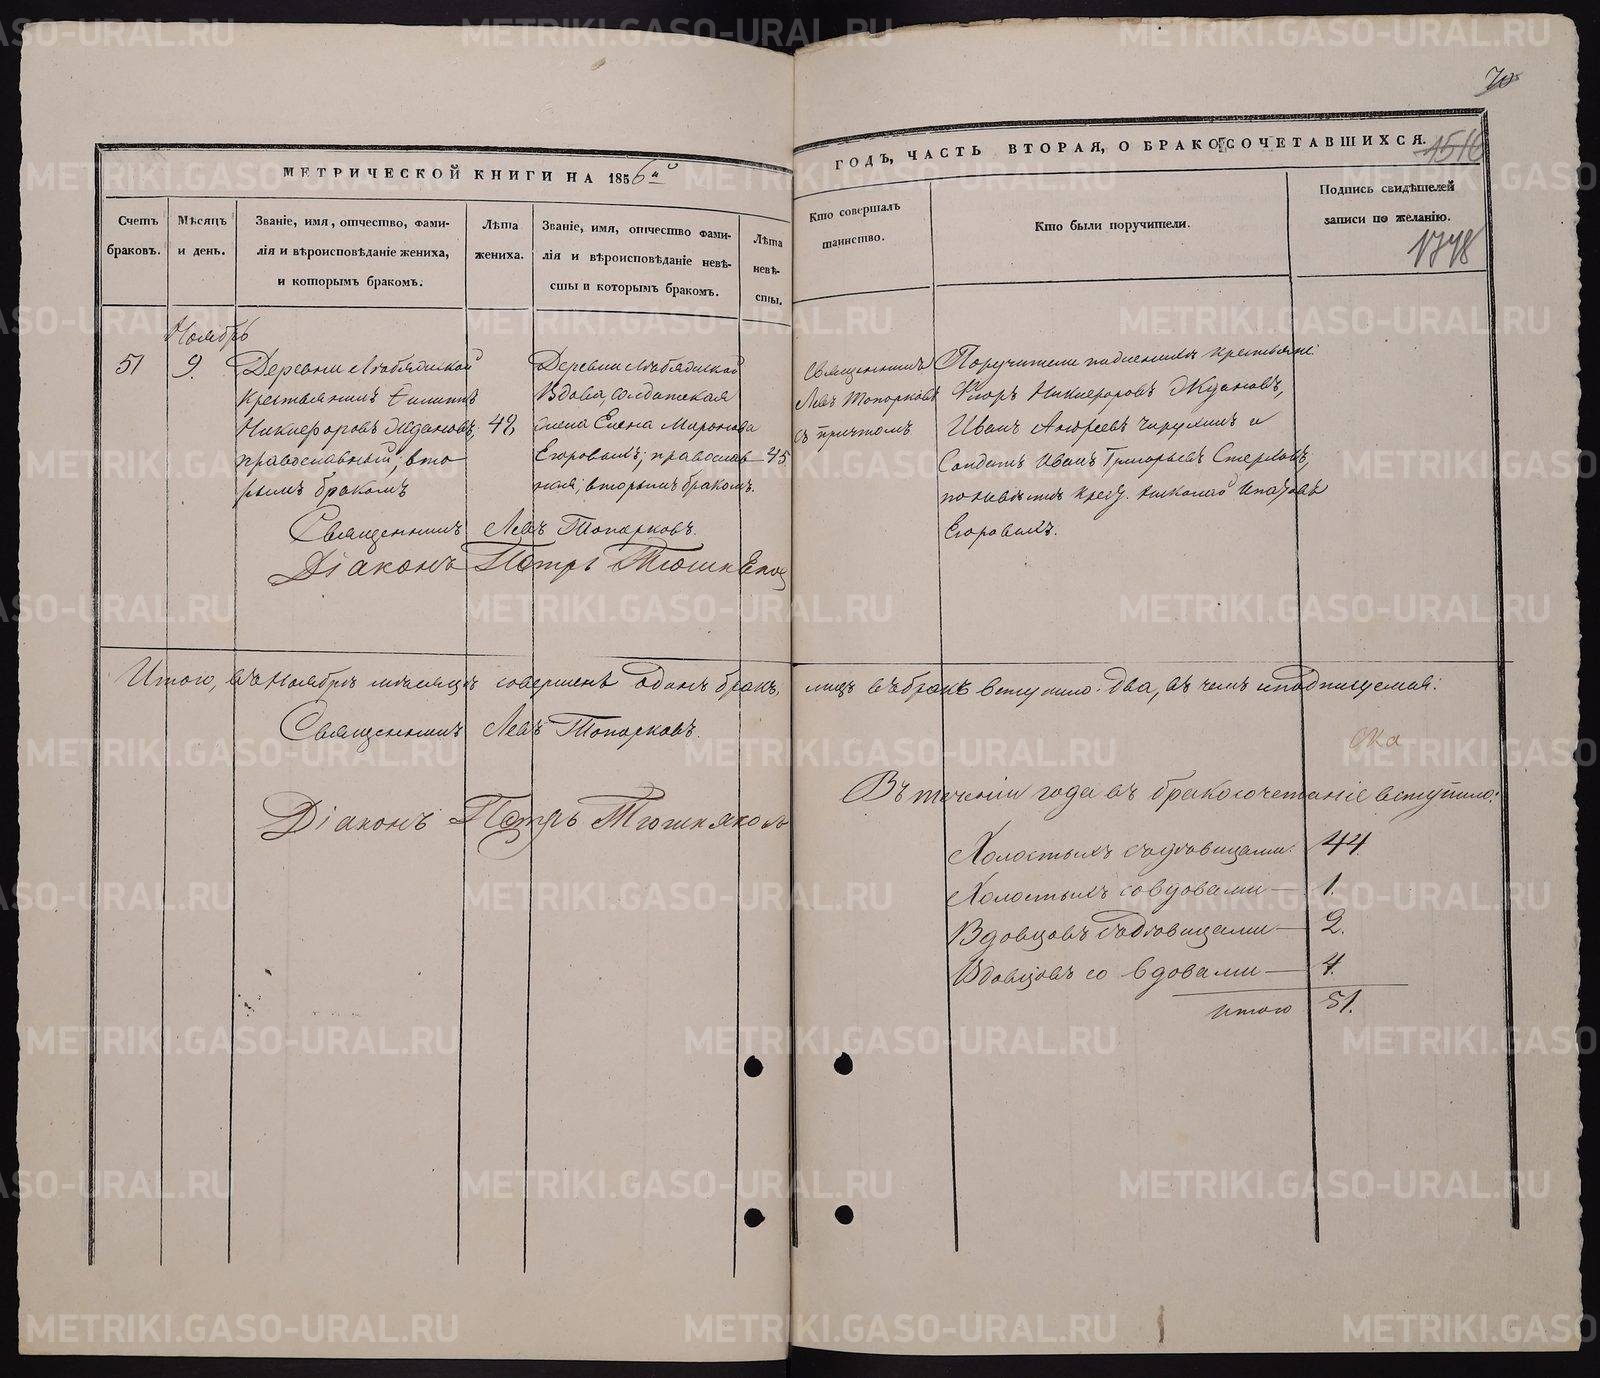 70
МЕТРИЧЕСКОЙ КНИГИ НА 1856й
ГОДЪ, ЧАСТЬ ВТОРАЯ, О БРАКОСОЧЕТАВШИХСЯ.
1516
Счетъ браковъ.
Мѣсяцъ и день.
Званіе, имя, отчество, фами-
лія и вѣроисповѣданіе жениха,
и которымъ бракомъ.
Лѣта жениха.
Званіе, имя, отчество фами-
лія и вѣроисповѣданіе невѣ-
сты и которымъ бракомъ.
Лѣта невѣ-
сты.
Кто совершалъ
таинство.
Кто были поручители.
Подпись свидѣтелей
записи по желанію.
1748
Ноябрь
51
9.
Деревни
Крестьянинъ Филиппъ
Никифоровъ Ждановъ;
православный; вто
рымъ бракомъ
42
Деревни
Вдова, солдатская
жена Елена Миронова
Егоровыхъ; православ
ная, вторымъ бракомъ.
45
Священникъ
Левъ Топорковъ
съ причтомъ
Поручители по женихѣ крестьяне:
Флоръ Никифоровъ Ждановъ,
Иванъ Андреевъ и
Солдатъ Иванъ Григорьевъ
по невѣстѣ крест. Николай Ипатовъ
Егоровыхъ.
Священникъ Левъ Топорковъ.
Діаконъ Петръ
Итого, въ Ноябрѣ мѣсяцѣ совершенъ одинъ бракъ, лицъ въ бракъ вступило два, въ чемъ и подписуемся:
Священникъ Левъ Топорковъ.
Діаконъ Петръ
Въ теченіи года въ бракосочетаніе вступило:
Холостыхъ съ дѣвицами 44.
Холостыхъ со вдовами — 1.
Вдовцовъ съ дѣвицами — 2.
Вдовцовъ со вдовами — 4.
Итого 51.
METRIKI.GASO-URAL.RU